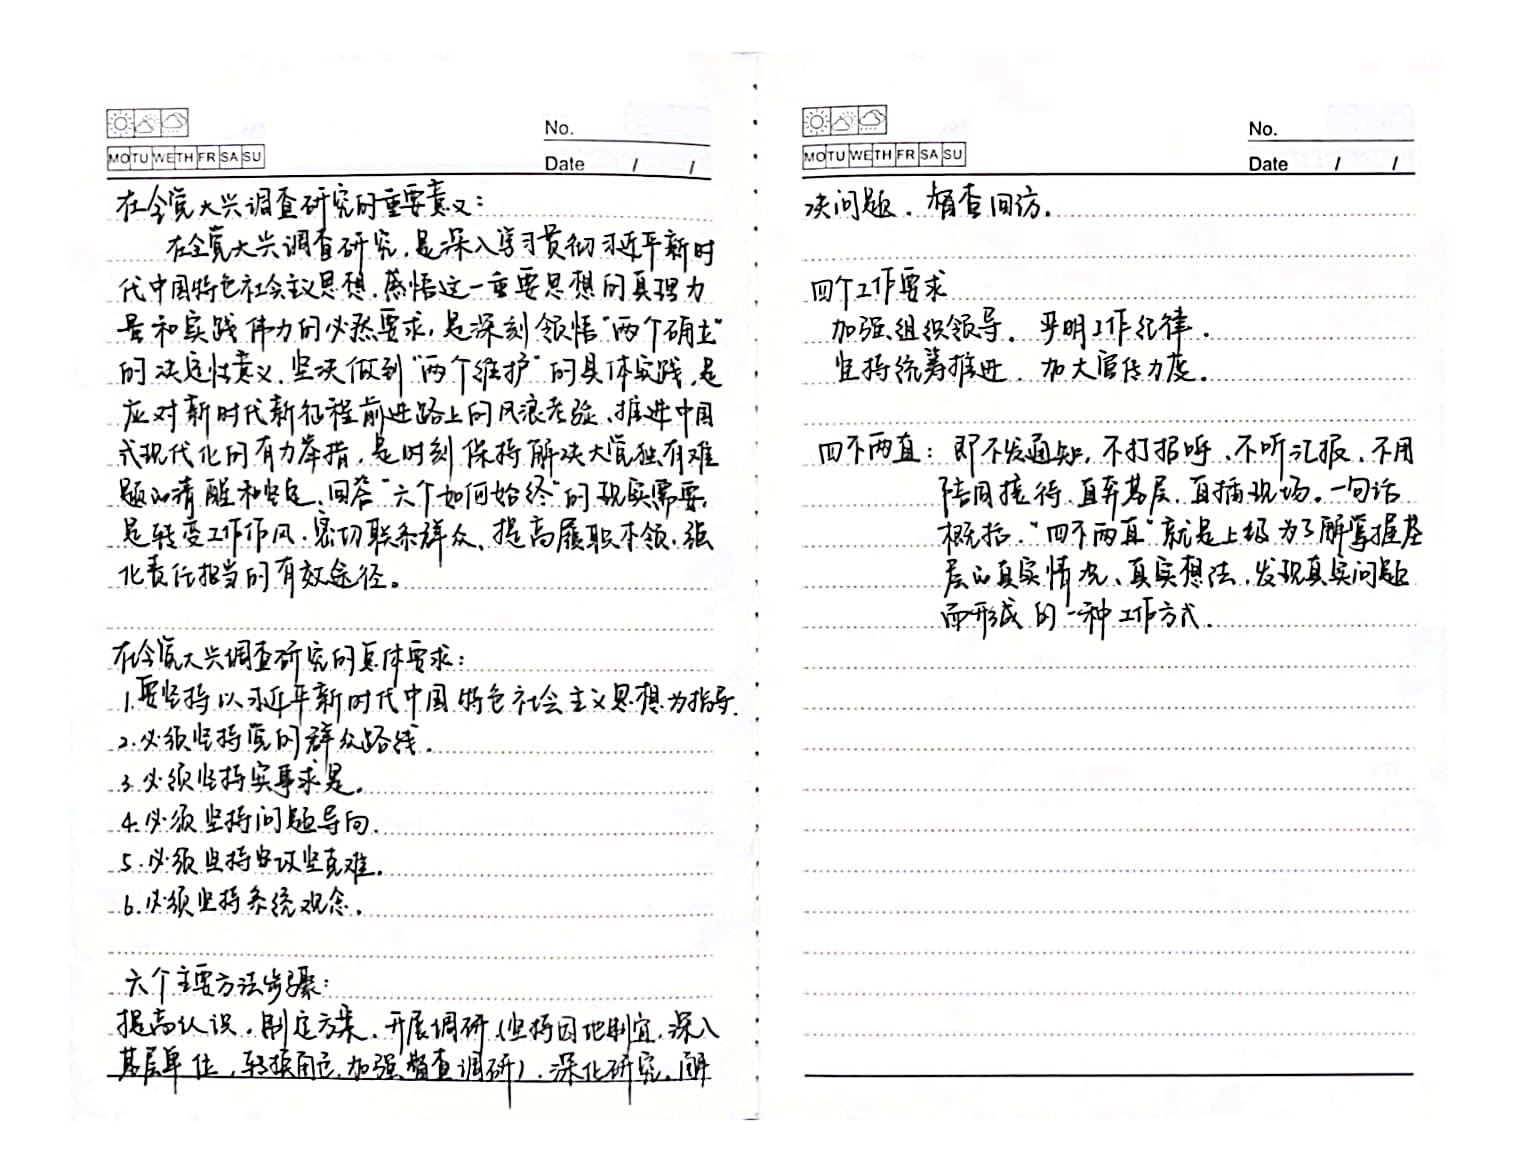 No.
MO TU WE TH FR SA SU
Date / /
在全党大兴调查研究的重要意义：
在全党大兴调查研究，是深入学习贯彻习近平新时
代中国特色社会主义思想，感悟这一重要思想的真理力
量和实践伟力的必然要求，是深刻领悟"两个确立"
的决定性意义，坚决做到"两个维护"的具体实践，是
应对新时代新征程前进路上的风浪考验、推进中国
式现代化的有力举措，是时刻保持解决大党独有难
题的清醒和坚定，回答"六个如何始终"的现实需要，
是转变工作作风，密切联系群众、提高履职本领，强
化责任担当的有效途径。
在全党大兴调查研究的具体要求：
1.要坚持以习近平新时代中国特色社会主义思想为指导.
2.必须坚持党的群众路线.
3.必须坚持实事求是.
4.必须坚持问题导向.
5.必须坚持攻坚克难.
6.必须坚持系统观念.
六个主要方法步骤：
提高认识，制定方案，开展调研（坚持因地制宜，深入
基层单位，转换角色，加强督查调研），深化研究，解
No.
MO TU WE TH FR SA SU
Date / /
决问题，督查回访.
四个工作要求
加强组织领导，严明工作纪律.
坚持统筹推进，加大宣传力度.
四不两直：即不发通知，不打招呼，不听汇报，不用
陪同接待，直奔基层，直插现场。一句话
概括，"四不两直"就是上级为了解掌握基
层的真实情况、真实想法，发现真实问题
而形成的一种工作方式.